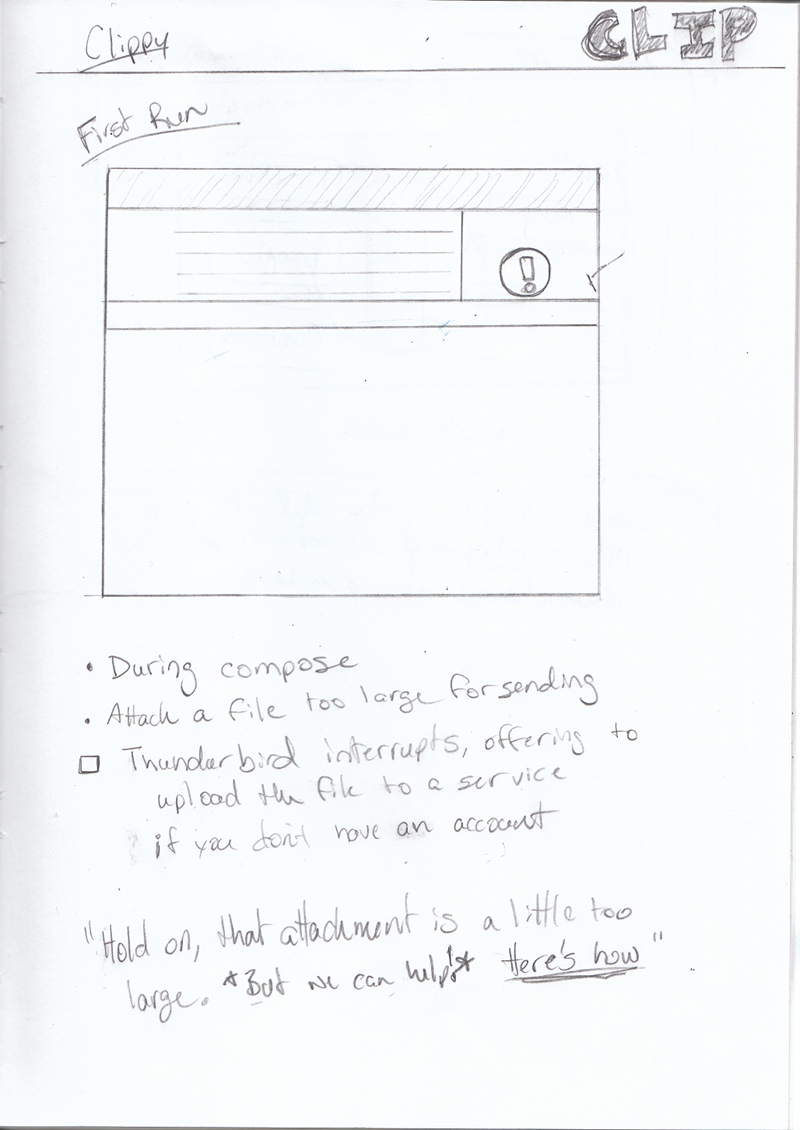 Clippy
CLIP
First Run
!
• During compose
• Attach a file too large for sending
□ Thunderbird interrupts, offering to
upload the file to a service
if you don't have an account
"Hold on, that attachment is a little too
large. *But we can help!* Here's how"